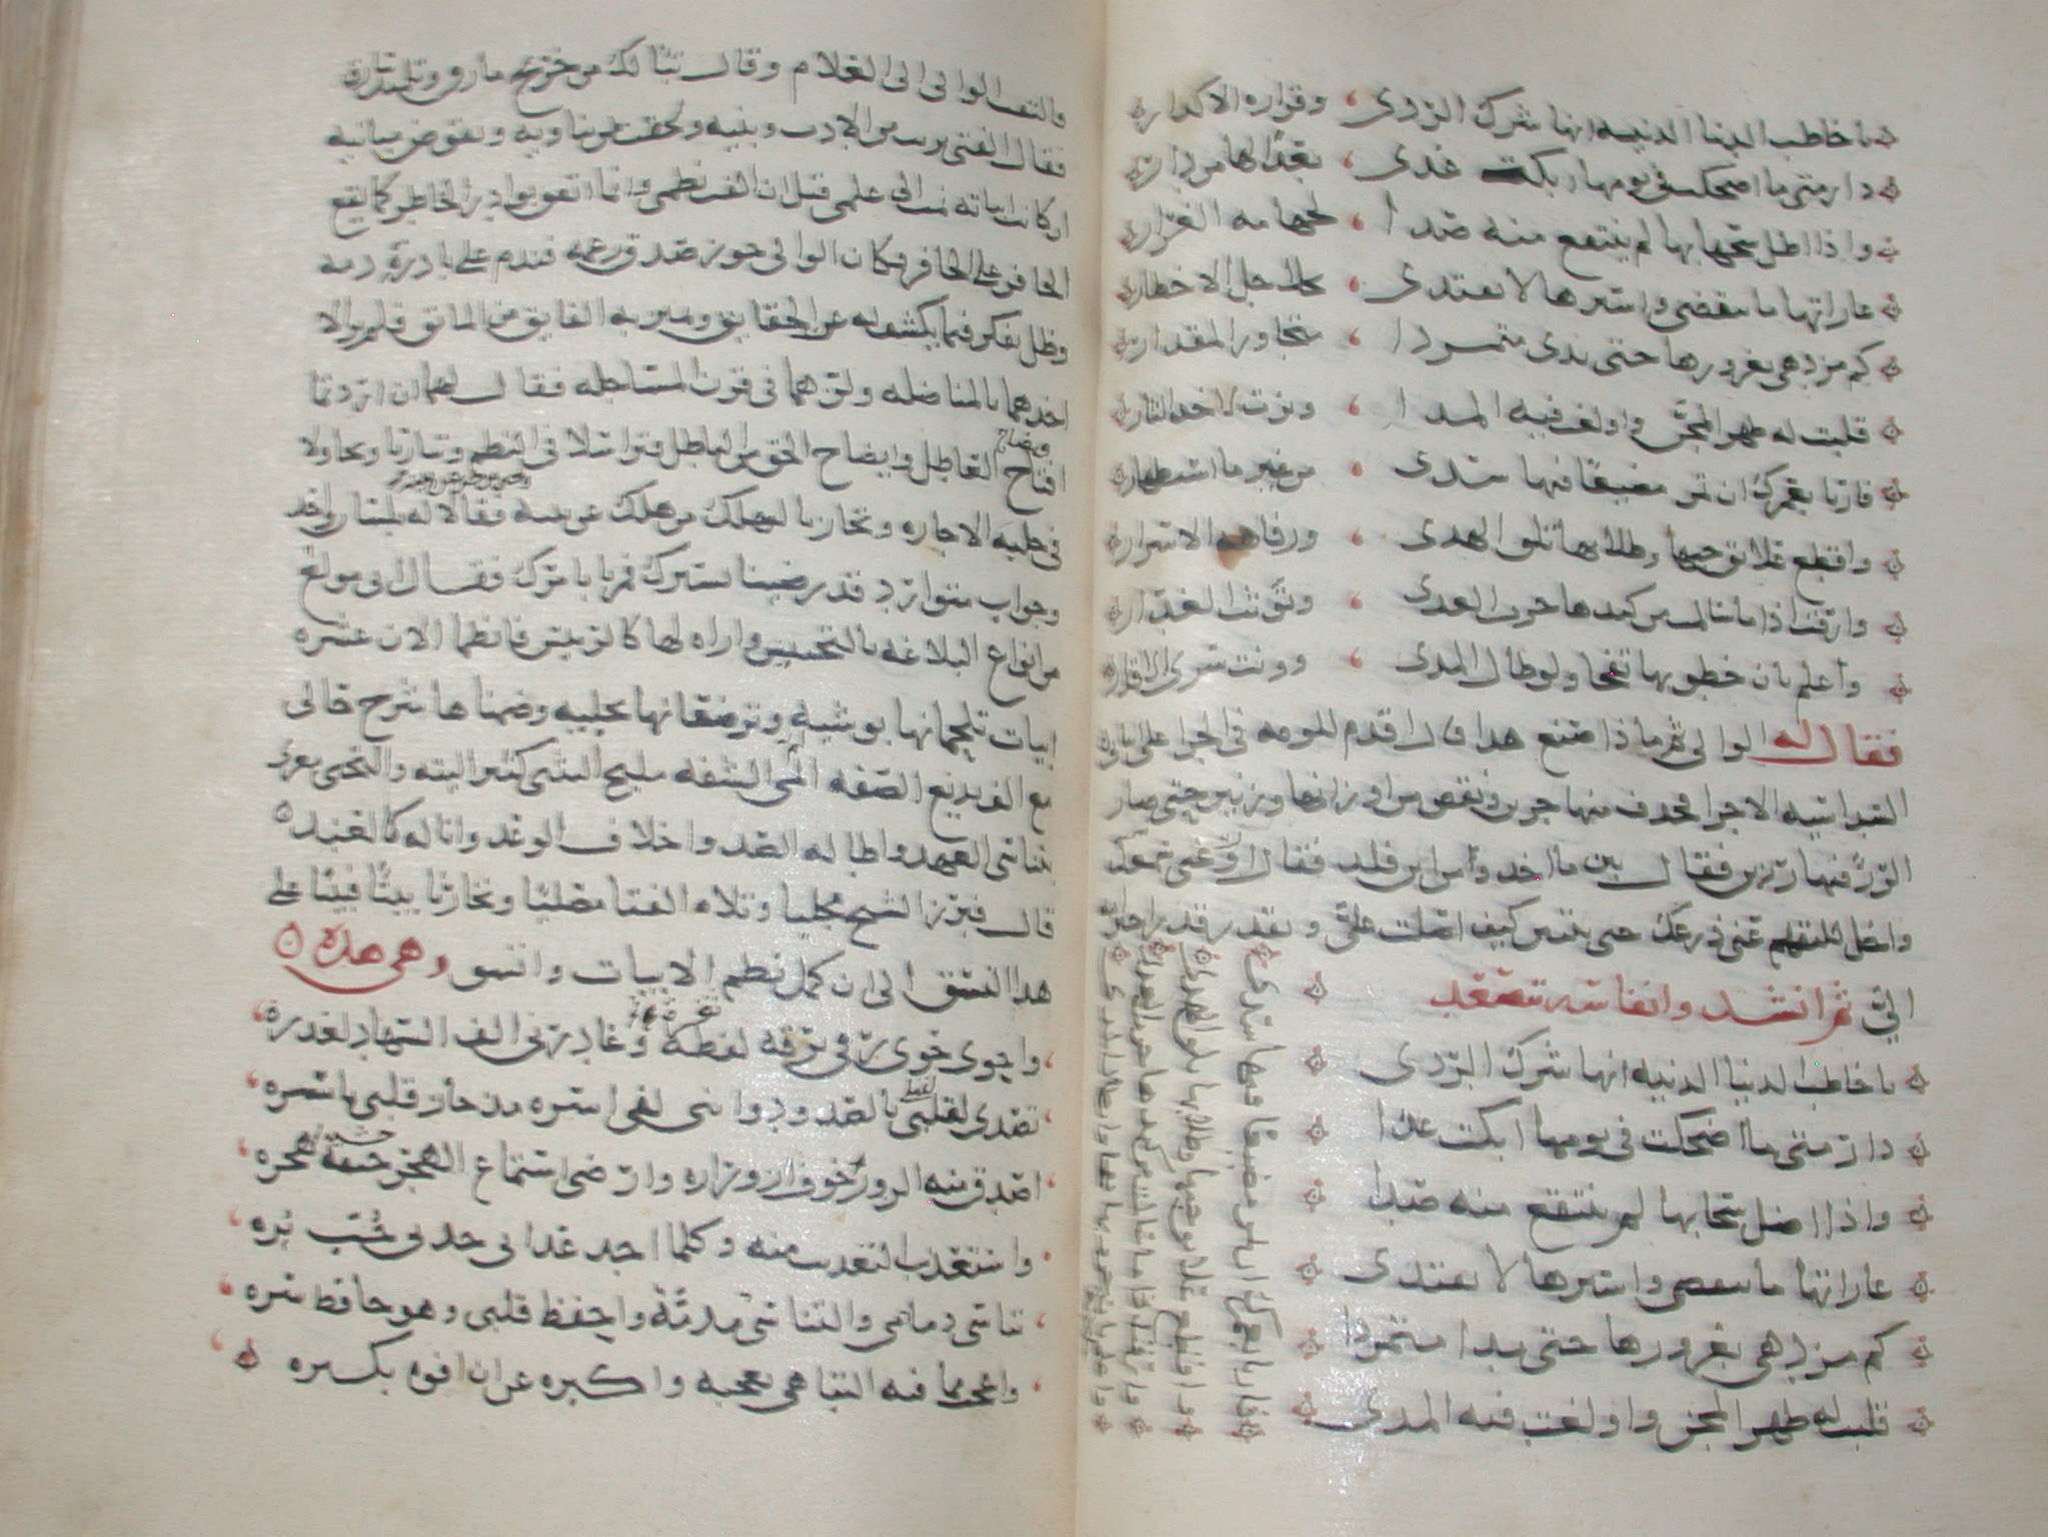 يا خاطب الدنيا الدنيه انها شرك الردى وقراره الاكدار
دار متى ما اضحكت في يومها ابكت غدى بعدا لها من دار
واذا اظل سحابها لم ينتفع منه صدا لجهامه الغرار
غاراتها ما تنقضي واسيرها لا يفتدى بجلائل الاخطار
كم مزدهى بغرورها حتى بدى متمردا متجاوز المقدار
قلبت له ظهر المجن واولغت فيه المدا ونزت لاخذ الثار
فاربا بعمرك ان يمر مضيعا فيها سدى من غير ما استظهار
واقطع علائق حبها وطلابها تلق الهدى ورفاهه الاسرار
وارقب اذا ما سالمت من كيدها حرب العدى وتوثب الغدار
واعلم بان خطوبها تفجا ولو طال المدى وونت سرى الاقدار
فقال له الوالي ثم ماذا صنع هذا قال اقدم للومه في الجزا على ابياتي
السداسيه الاجزا فحذف منها جزين ونقص من اوزانها وزنين حتى صار
الرزء فيها رزين فقال بين ما اخذ ومن اين فلذ فقال ارعني سمعك
واخل للتفهم عني ذرعك حتى تتبين كيف اصلت علي وتقدر قدر اجترامه
الي ثم انشد وانفاسه تتصعد
يا خاطب الدنيا الدنيه انها شرك الردى
دار متى ما اضحكت في يومها ابكت غدا
واذا اظل سحابها لم ينتفع منه صدا
غاراتها ما تنقضي واسيرها لا يفتدى
كم مزدهى بغرورها حتى بدا متمردا
قلبت له ظهر المجن واولغت فيه المدى
فاربا بعمرك ان يمر مضيعا فيها سدى
واقطع علائق حبها وطلابها تلق الهدى
وارقب اذا ما سالمت من كيدها حرب العدى
واعلم بان خطوبها تفجا ولو طال المدى
والتفت الوالي الى الغلام وقال تبا لك من خريج مارق وتلميذ سارق
فقال الفتى برئت من الادب وبنيه ولحقت بمن يناويه ويقوض مبانيه
ان كانت ابياته نمت الى علمي قبل ان الفت نظمي وانما اتفق توارد الخاطر كما يقع
الحافر على الحافر فكان الوالي جوز صدق زعمه فندم على بادرة ذمه
وظل يفكر فيما يكشف له عن الحقايق ويميز به الفايق من المايق فلم ير الا
اخذهما بالمناضله ولزهما في قرن المساجله فقال لهما ان اردتما
افتضاح العاطل وايضاح الحق من الباطل فتراسلا في النظم وتباريا وتجاولا
في حلبه الاجازه وتجاريا ليهلك من هلك عن بينه
ويحيى من حي عن بينه
فقالا له بلسان واحد
وجواب متوارد قد رضينا بسبرك فمرنا بامرك فقال اني مولع
من انواع البلاغه بالتجنيس واراه لها كالرييس فانظما الان عشره
ابيات تلحمانها بوشيه وترصعانها بحليه وضمناها شرح حالي
مع الف بديع الصفه المى الشفه مليح التثني كثير التيه والتجني مغرى
بتناسي العهد واطاله الصد واخلاف الوعد وانا له كالعبد
قال فبرز الشيخ مجليا وتلاه الفتا مصليا وتجاريا بيتا فبيتا على
هذا النسق الى ان كمل نظم الابيات واتسق وهي هذه
واحوى حوى رقي برقه لفظه وغادرني الف السهاد لغدره
تصدى لقتلي بالصدود وانني لفي اسره مذ حاز قلبي باسره
اصدق منه الزور خوف ازوراره وارضى استماع الهجر خشية هجره
واستعذب التعذيب منه وكلما اجد عذابي جد لي حب بره
تناسى ذمامي والتناسي مذمة واحفظ قلبي وهو حافظ سره
واعجب ما فيه التباهي بعجبه واكبره عن ان افوه بكبره